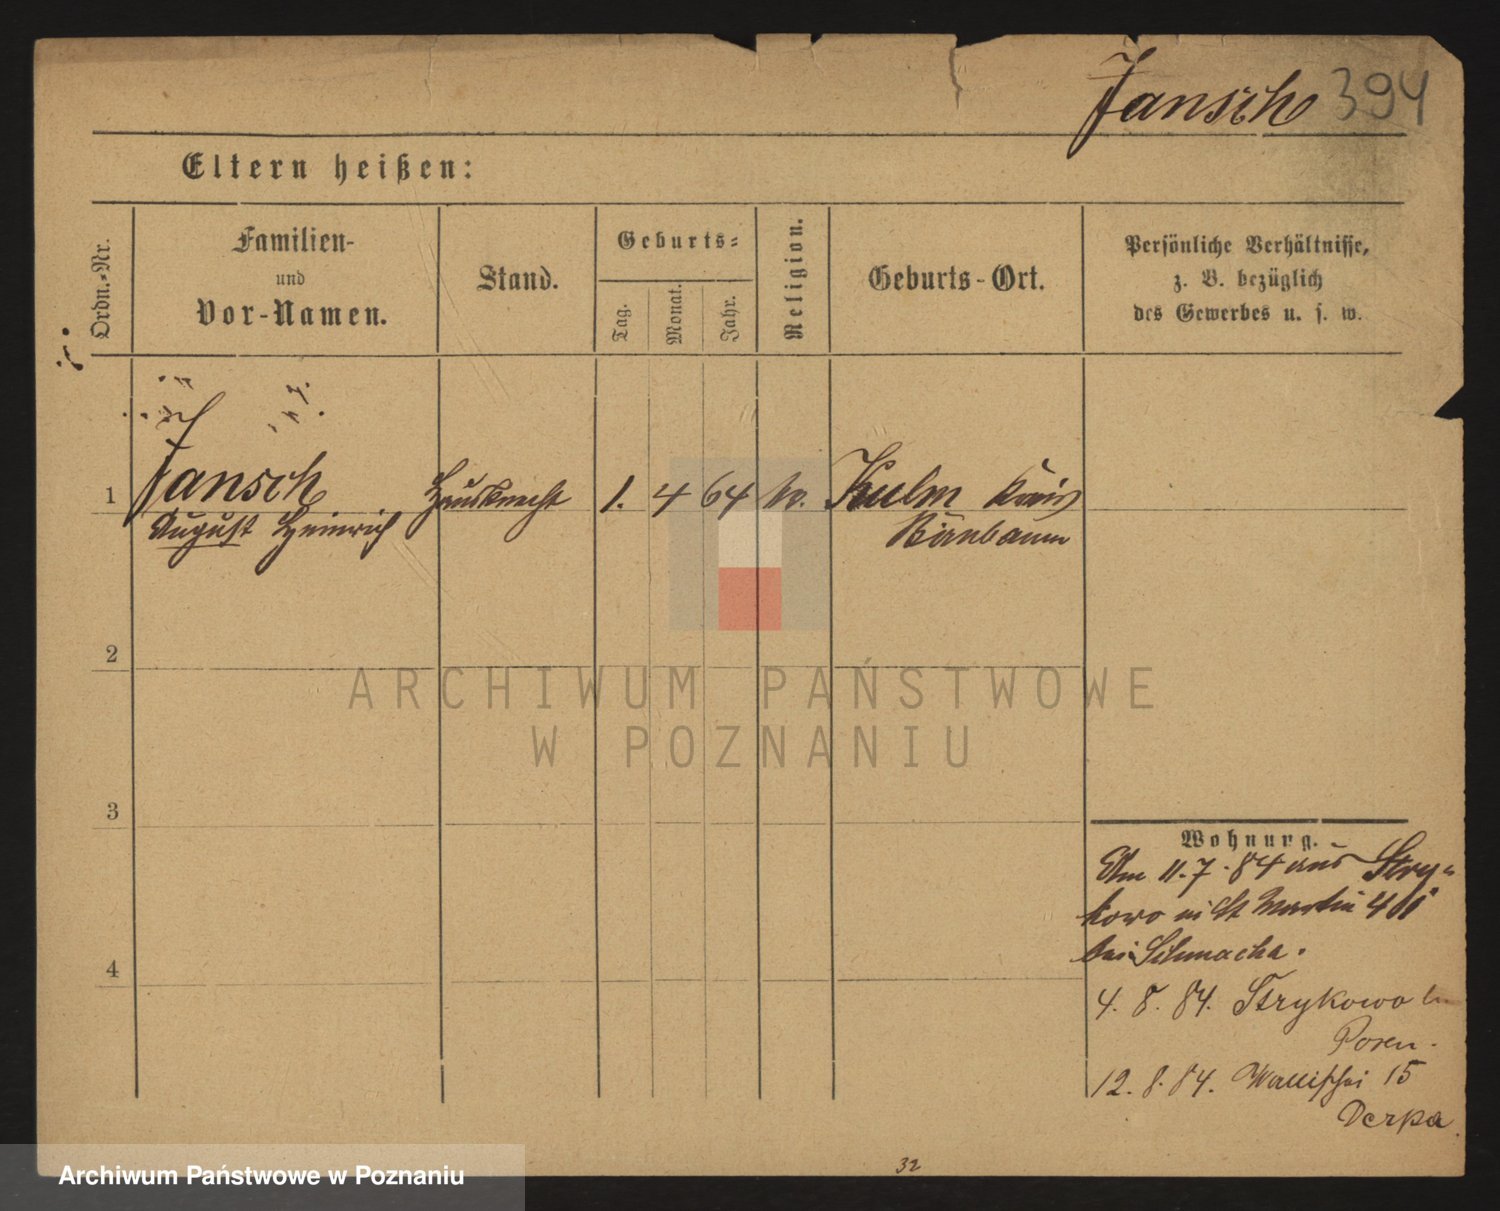 Jansch 394
Eltern heißen:
Ordn.-Nr.
Familien-
und
Vor-Namen.
Stand.
Geburts-
Tag.
Monat.
Jahr.
Religion.
Geburts-Ort.
Persönliche Verhältnisse,
z. B. bezüglich
des Gewerbes u. s. w.
1 Jansch Hausknecht 1. 4 64 Kulm Kreis
August Heinrich Birnbaum
2
3
4
Wohnung.
Am 11.7.84 aus Stry-
kowo St Martin 41
bei
4. 8. 84. Strykowo
Posen.
12. 8. 84. Wallischei 15
Derpa
32
ARCHIWUM PAŃSTWOWE
W POZNANIU
Archiwum Państwowe w Poznaniu